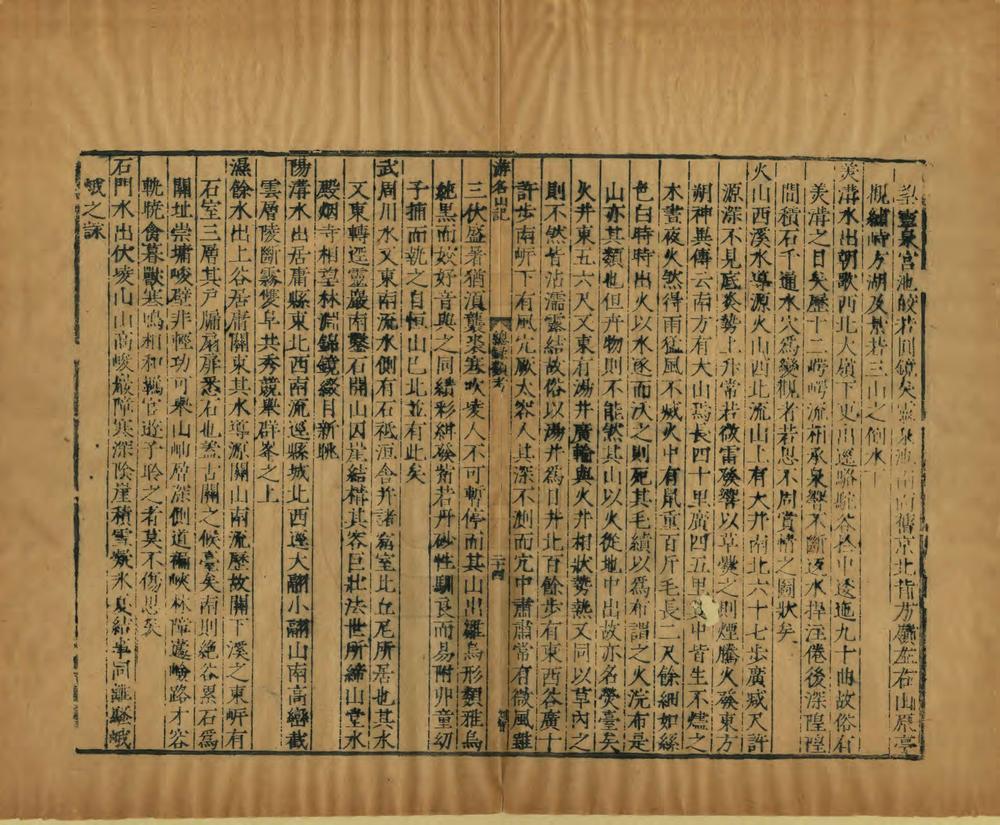 望靈泉宮池皎若圓鏡矣靈泉池 南傳京北皆方 左右山原亭
觀繡峙方湖反景若三山之倒水
美溝水出朝歌西北大嶺下更出逕駱駝谷於中逶迤九十曲故俗有
美溝之目矣歷十二崿崿流相承泉響不斷返水捍注倦後深隍隍
間積石千通水穴爲變觀者若思不周賞情之圖狀矣
火山西溪水導源火山西北流山上有大井南北六十七步廣減尺許
源深不見底炎勢上升常若微雷發響以草爨之則煙騰火發東方
朔神異傳云南方有大山焉長四十里廣四五里其中皆生不燼之
木晝夜火然得雨猛風不滅火中有鼠重百斤毛長二尺餘細如絲
色白時時出火以水逐而沃之則死其毛績以爲布謂之火浣布是
山亦其類也但卉物則不能然其山以火從地中出故亦名熒臺矣
火井東五六尺又東有湯井廣輪與火井相狀勢熱又同以草內之
則不然皆沾濡露結故俗以湯井爲目井北百餘步有東西谷廣十
許步南岍下有風穴厥大容人其深不測而穴中肅肅常有微風雖
遊名山記
總錄類考
二十四
三伏盛暑猶須襲裘寒吹凌人不可暫停而其山出雛烏形類雅烏
純黑而姣好音與之同繢彩紺發觜若丹砂性馴良而易附丱童幼
子捕而執之自恒山已北並有此矣
武周川水又東南流水側有石祗洹舍并諸窟室比丘尼所居也其水
又東轉逕靈巖南鑿石開山因崖結構其容巨壯法世所締山堂水
殿烟寺相望林淵錦鏡綴目新眺
陽溝水出居庸縣東北西南流逕縣城北西逕大翮小翮山南高巒截
雲層陵斷霧雙阜共秀競舉群峯之上
濕餘水出上谷居庸關東其水導源關山南流歷故關下溪之東岍有
石室三層其戶牖扇扉悉石也蓋古關之候臺矣南則絕谷累石爲
關址崇墉峻壁非輕功可舉山岫層深側道褊峽林障邃嶮路才容
軌曉禽暮獸寒鳴相和羈官遊子聆之者莫不傷思矣
石門水出伏凌山山高峻巖障寒深陰崖積雪凝冰夏結事同離騷峨
峨之詠